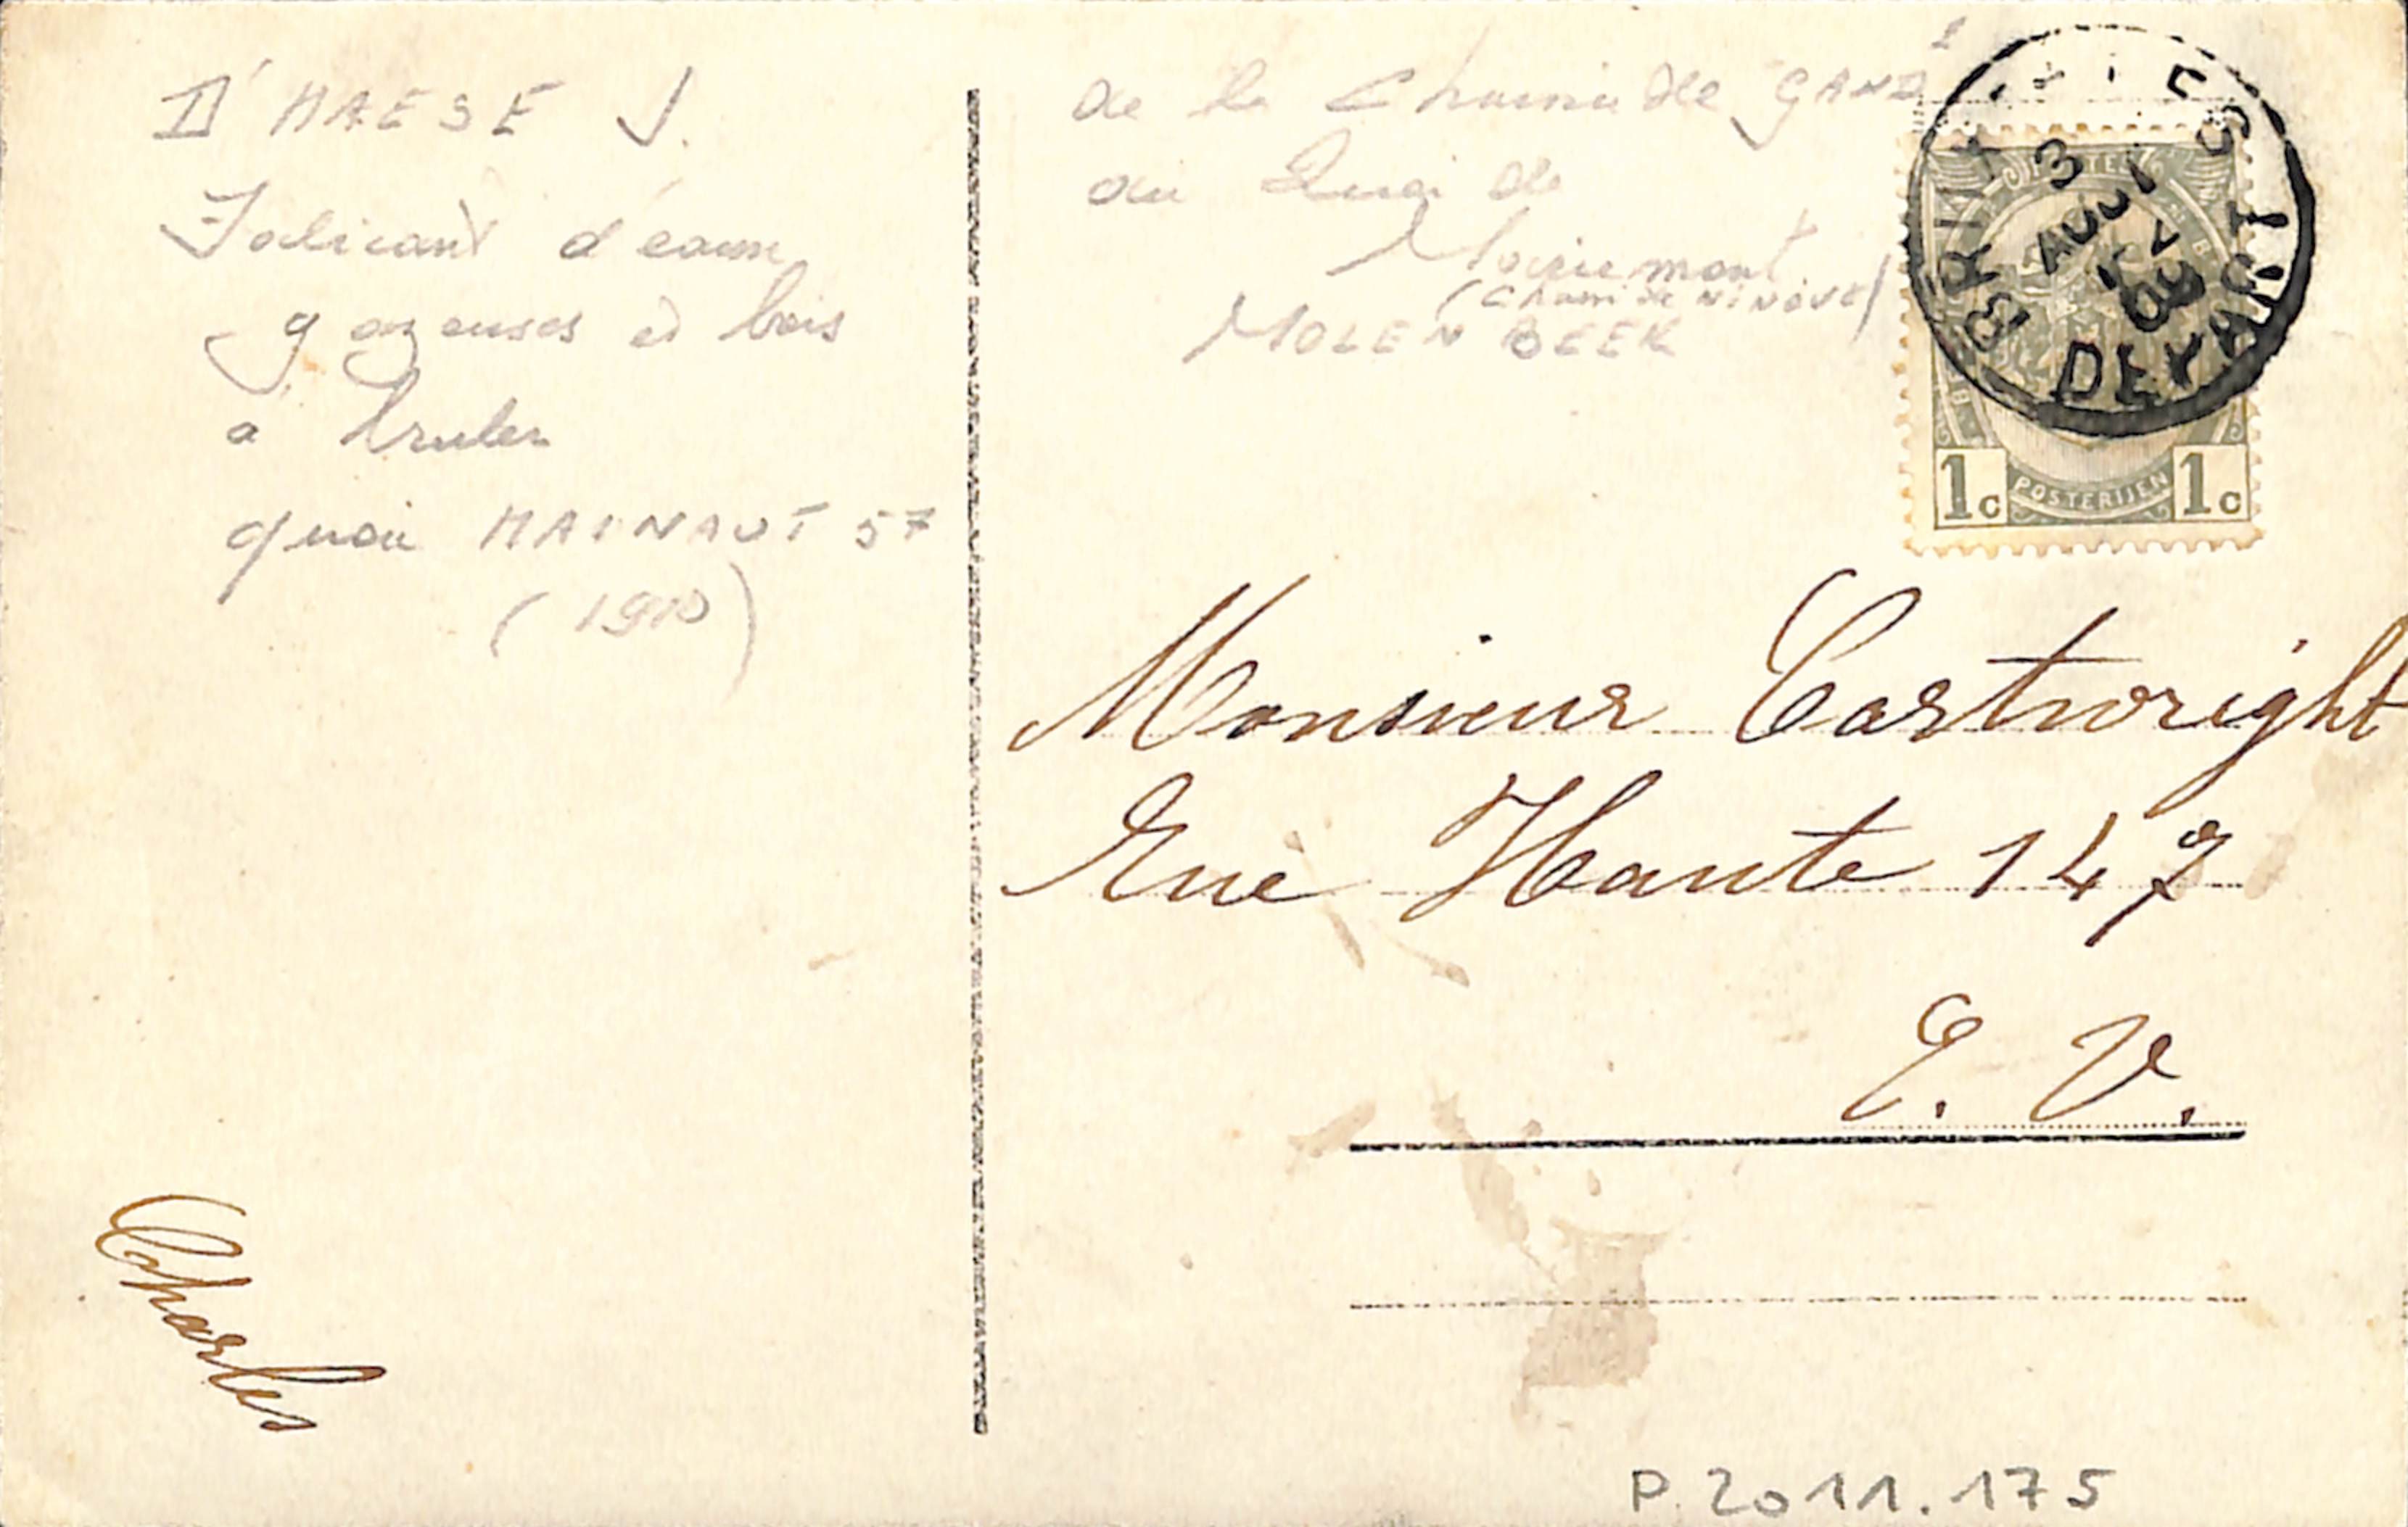 D'HAESE J.
Fabricant d'eaux
gazeuses et bois
a bruler
quai HAINAUT 57
(1910)
de la Chaussée de GAND
au Quai de
Mariemont
(Chaussée de NINOVE)
MOLENBEEK
BRUXELLES
3
AOUT
09
DEPART
POSTES
1c POSTERIJEN 1c
Monsieur Cartwright
Rue Haute 147
E. V.
Charles
P. 2011.175